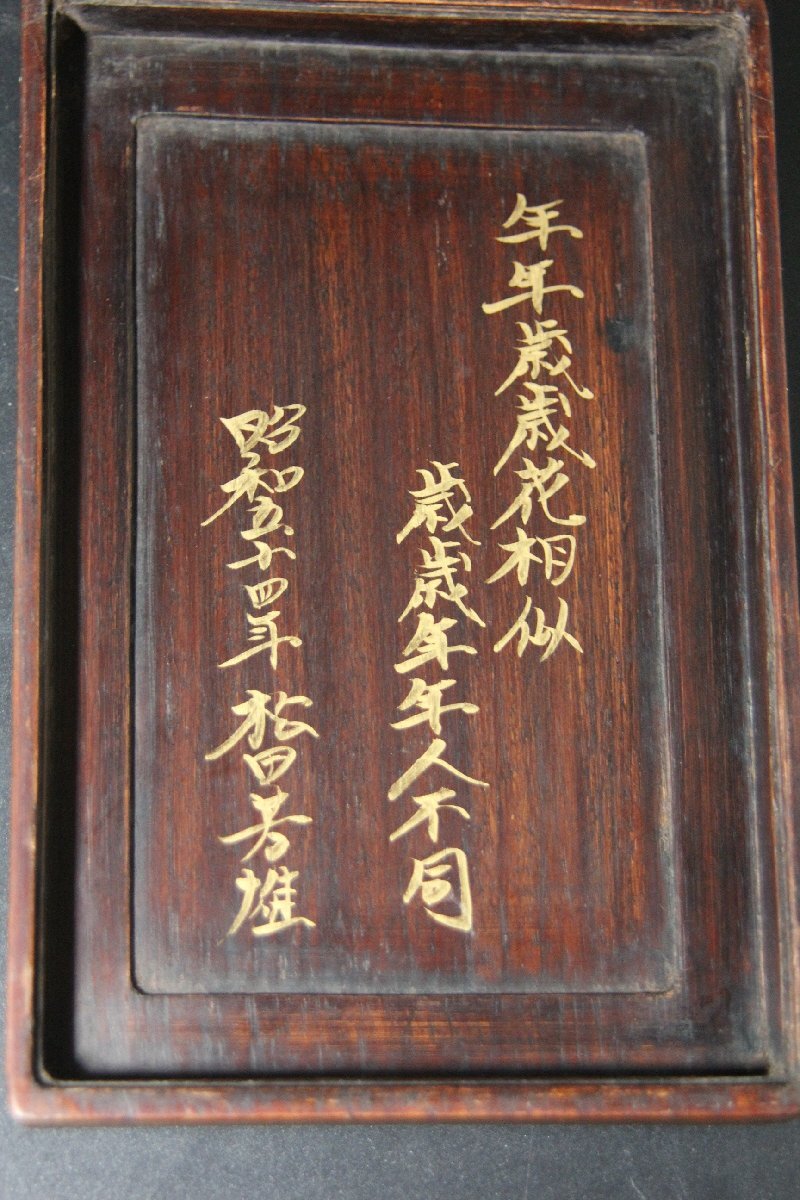 年年歳歳花相似
歳歳年年人不同
昭和五十四年 松田芳雄